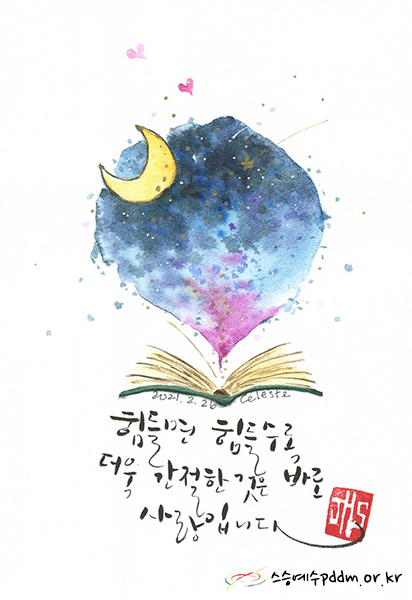 2021. 2. 26 Celeste
힘들면 힘들수록
더욱 간절한 것은 바로
사랑입니다
JHS
스승예수pddm.or.kr